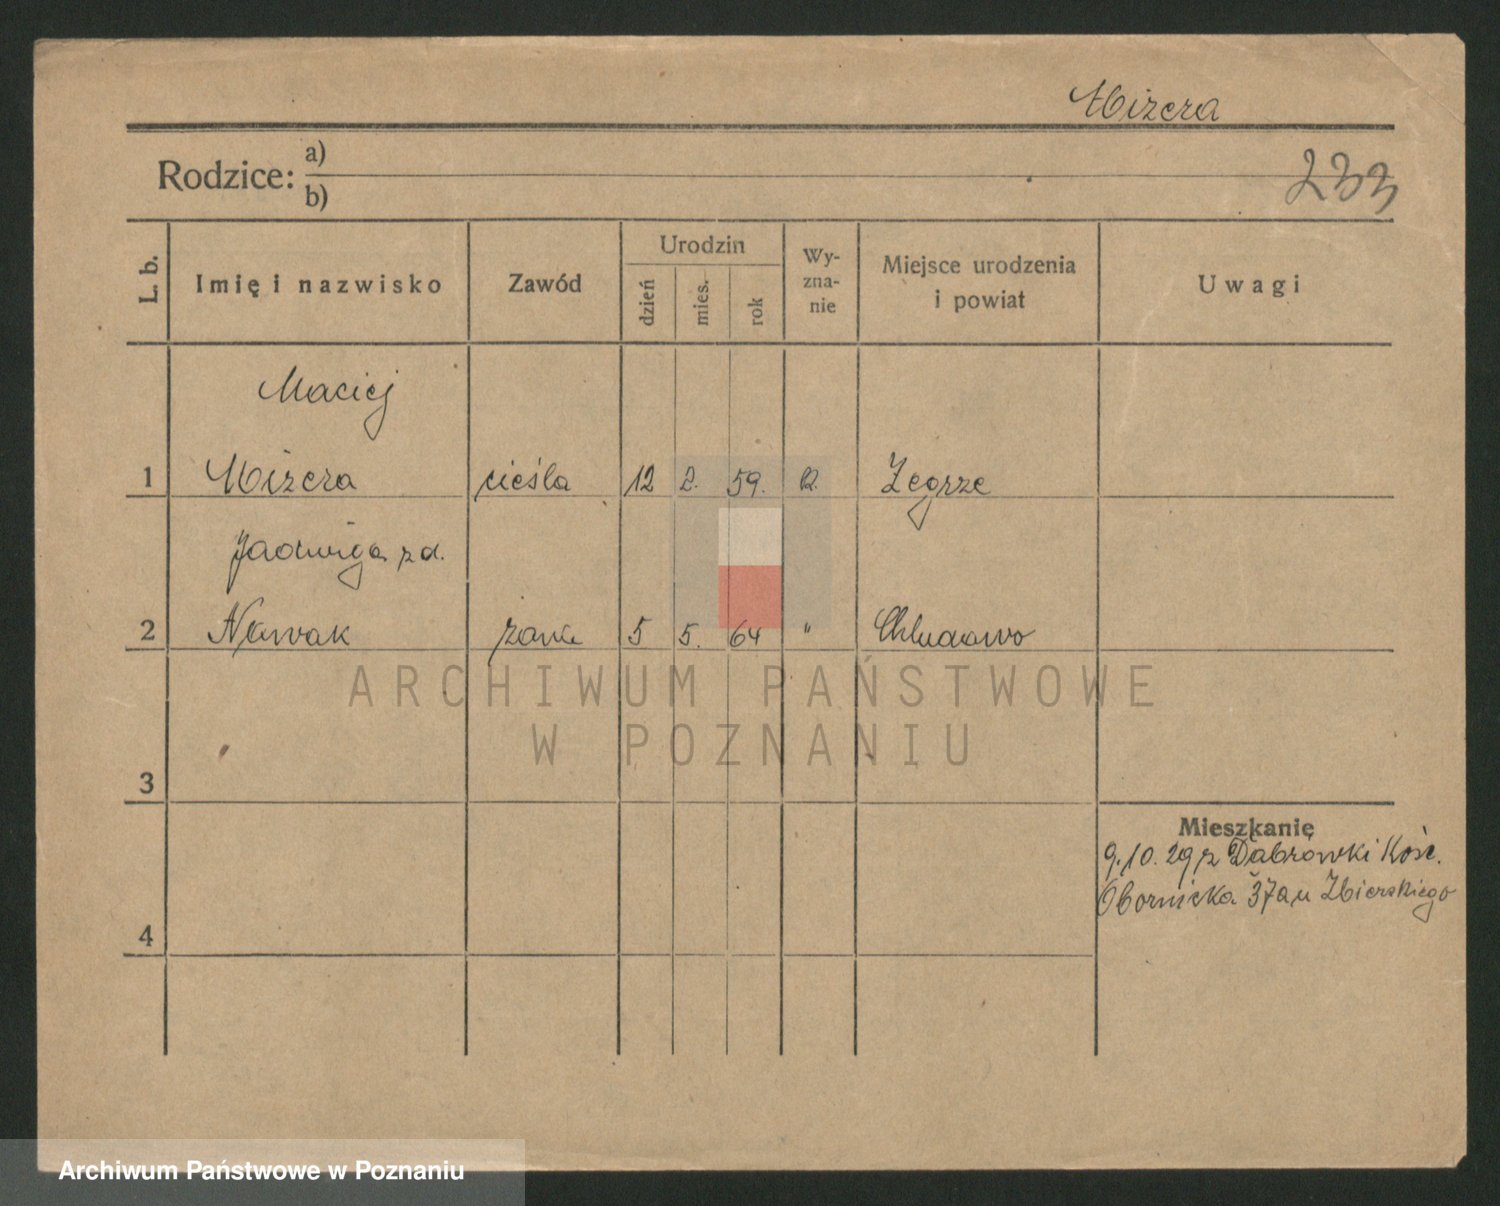 Mizera
233
Rodzice: a)
b)
L. b.
Imię i nazwisko
Zawód
Urodzin
dzień
mies.
rok
Wy-
zna-
nie
Miejsce urodzenia
i powiat
Uwagi
Maciej
1 Mizera cieśla 12 2. 59. Zegrze
Jadwiga z d.
2 Nowak żona 5 5. 64 " Chludowo
ARCHIWUM PAŃSTWOWE
W POZNANIU
3
Mieszkanie
9.10.29 z Dąbrówki Kośc.
Obornicka 37a u Zbierskiego
4
Archiwum Państwowe w Poznaniu